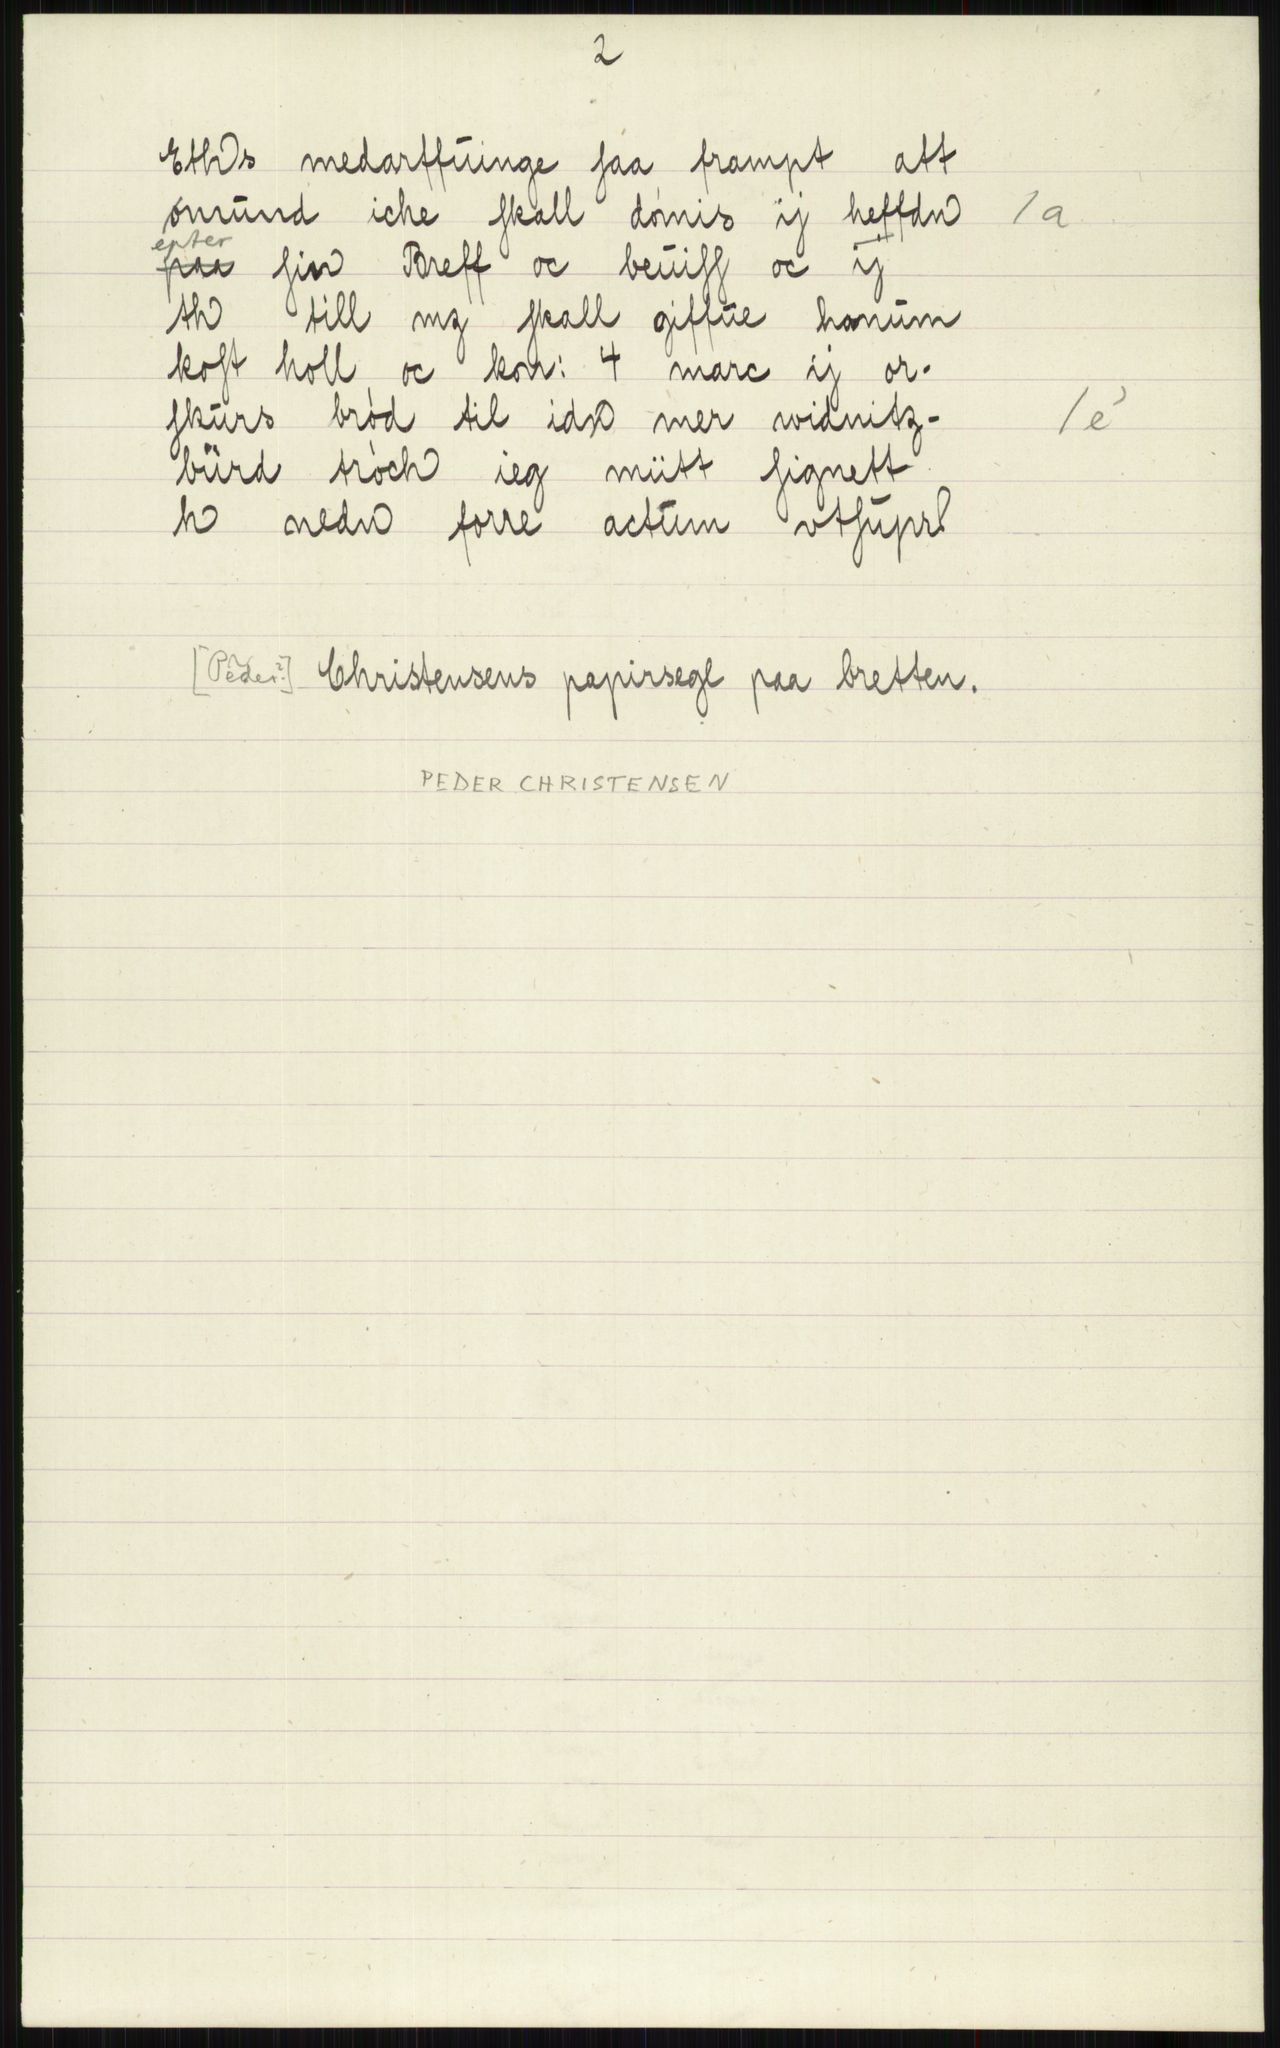 2
Eth~s medarffŭinge saa frampt att
ómŭnd iche skall dómis ij heffdn~ /a
epter
paa sin~ Breff oc beŭiss oc ij
th~ till mz skall giffŭe hanŭm
kost holl oc kon: 4 marc ij or-
skŭrs bród til idz~ mer widnitz- /e
bŭrd tróch~ ieg mŭtt signett
h~ nedn~ forre actŭm vtsŭpr~
[Peder?] Christensens papirsegl paa bretten.
PEDER CHRISTENSEN